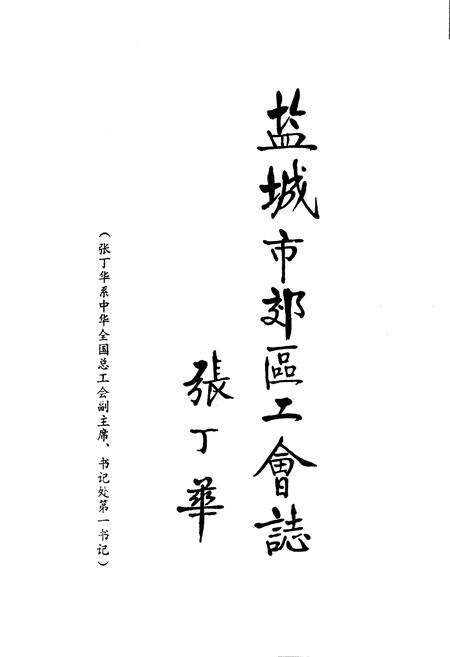 盐城市郊區工會誌
張丁華
（张丁华系中华全国总工会副主席、书记处第一书记）